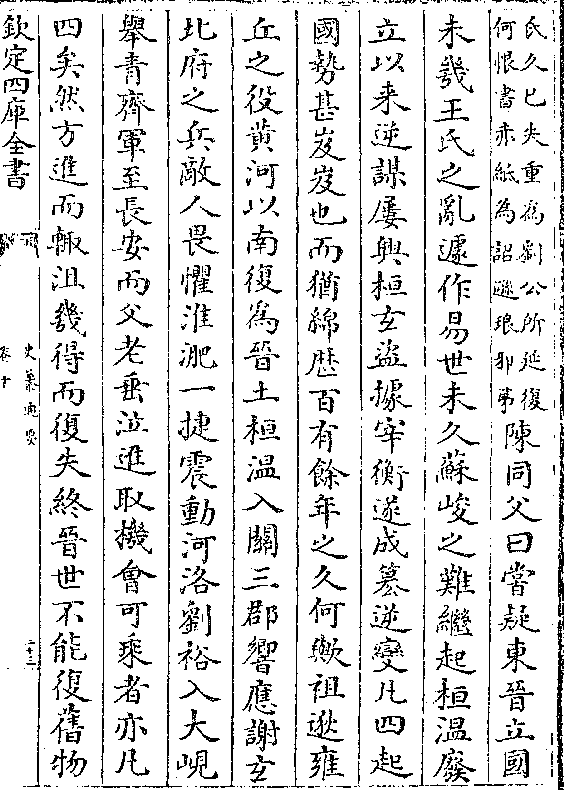 氏久已失重為劉公所延復
何恨書赤紙為詔遜琅邪第
陳同父曰嘗疑東晉立國
未㡬王氏之亂遽作易世未久蘇峻之難繼起桓温廢
立以来逆謀屢興桓玄盜據宰衡遂成簒逆變凡四起
國勢甚岌岌也而猶綿歴百有餘年之久何歟祖逖雍
丘之役黄河以南復為晉土桓温入關三郡響應謝玄
北府之兵敵人畏懼淮淝一捷震動河洛劉裕入大峴
舉青齊軍至長安而父老垂泣進取機會可乘者亦凡
四矣然方進而輙沮㡬得而復失終晉世不能復舊物
欽定四庫全書
史纂通要
卷十